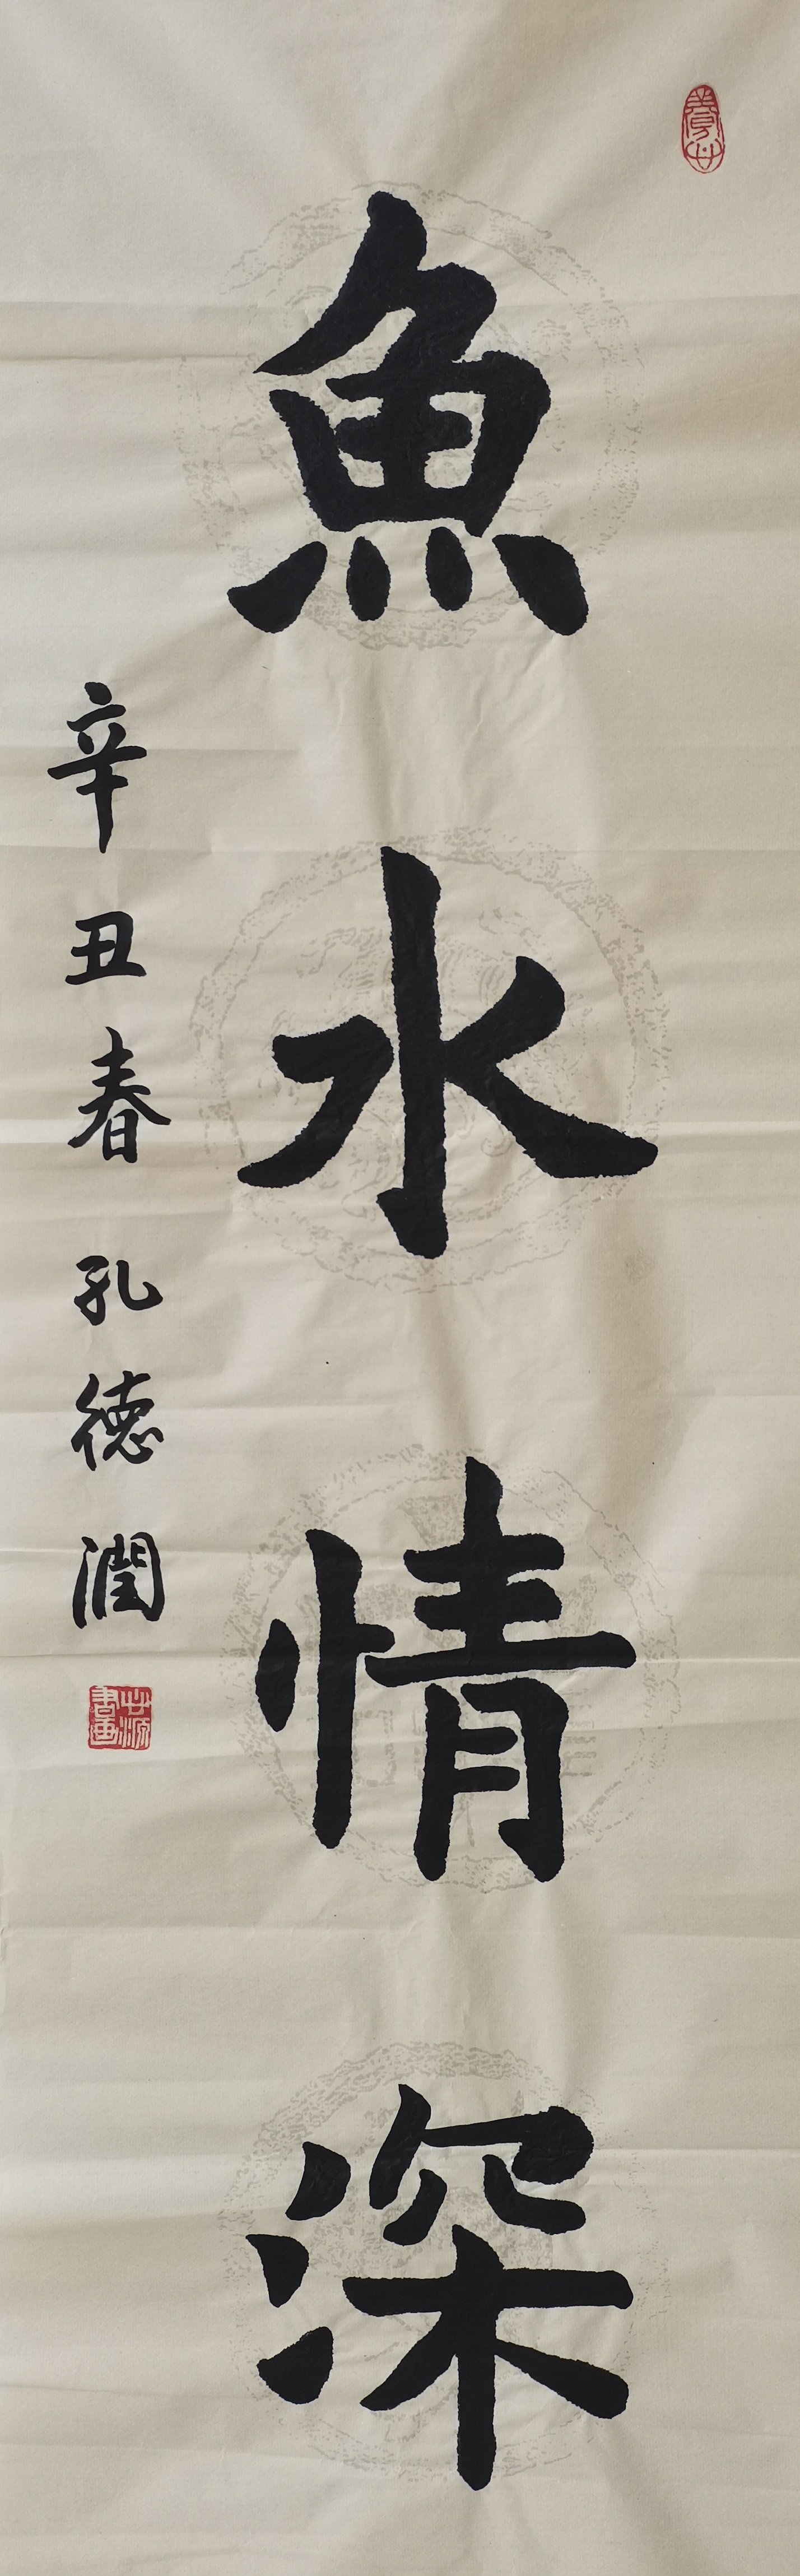 魚水情深
辛丑春孔德潤